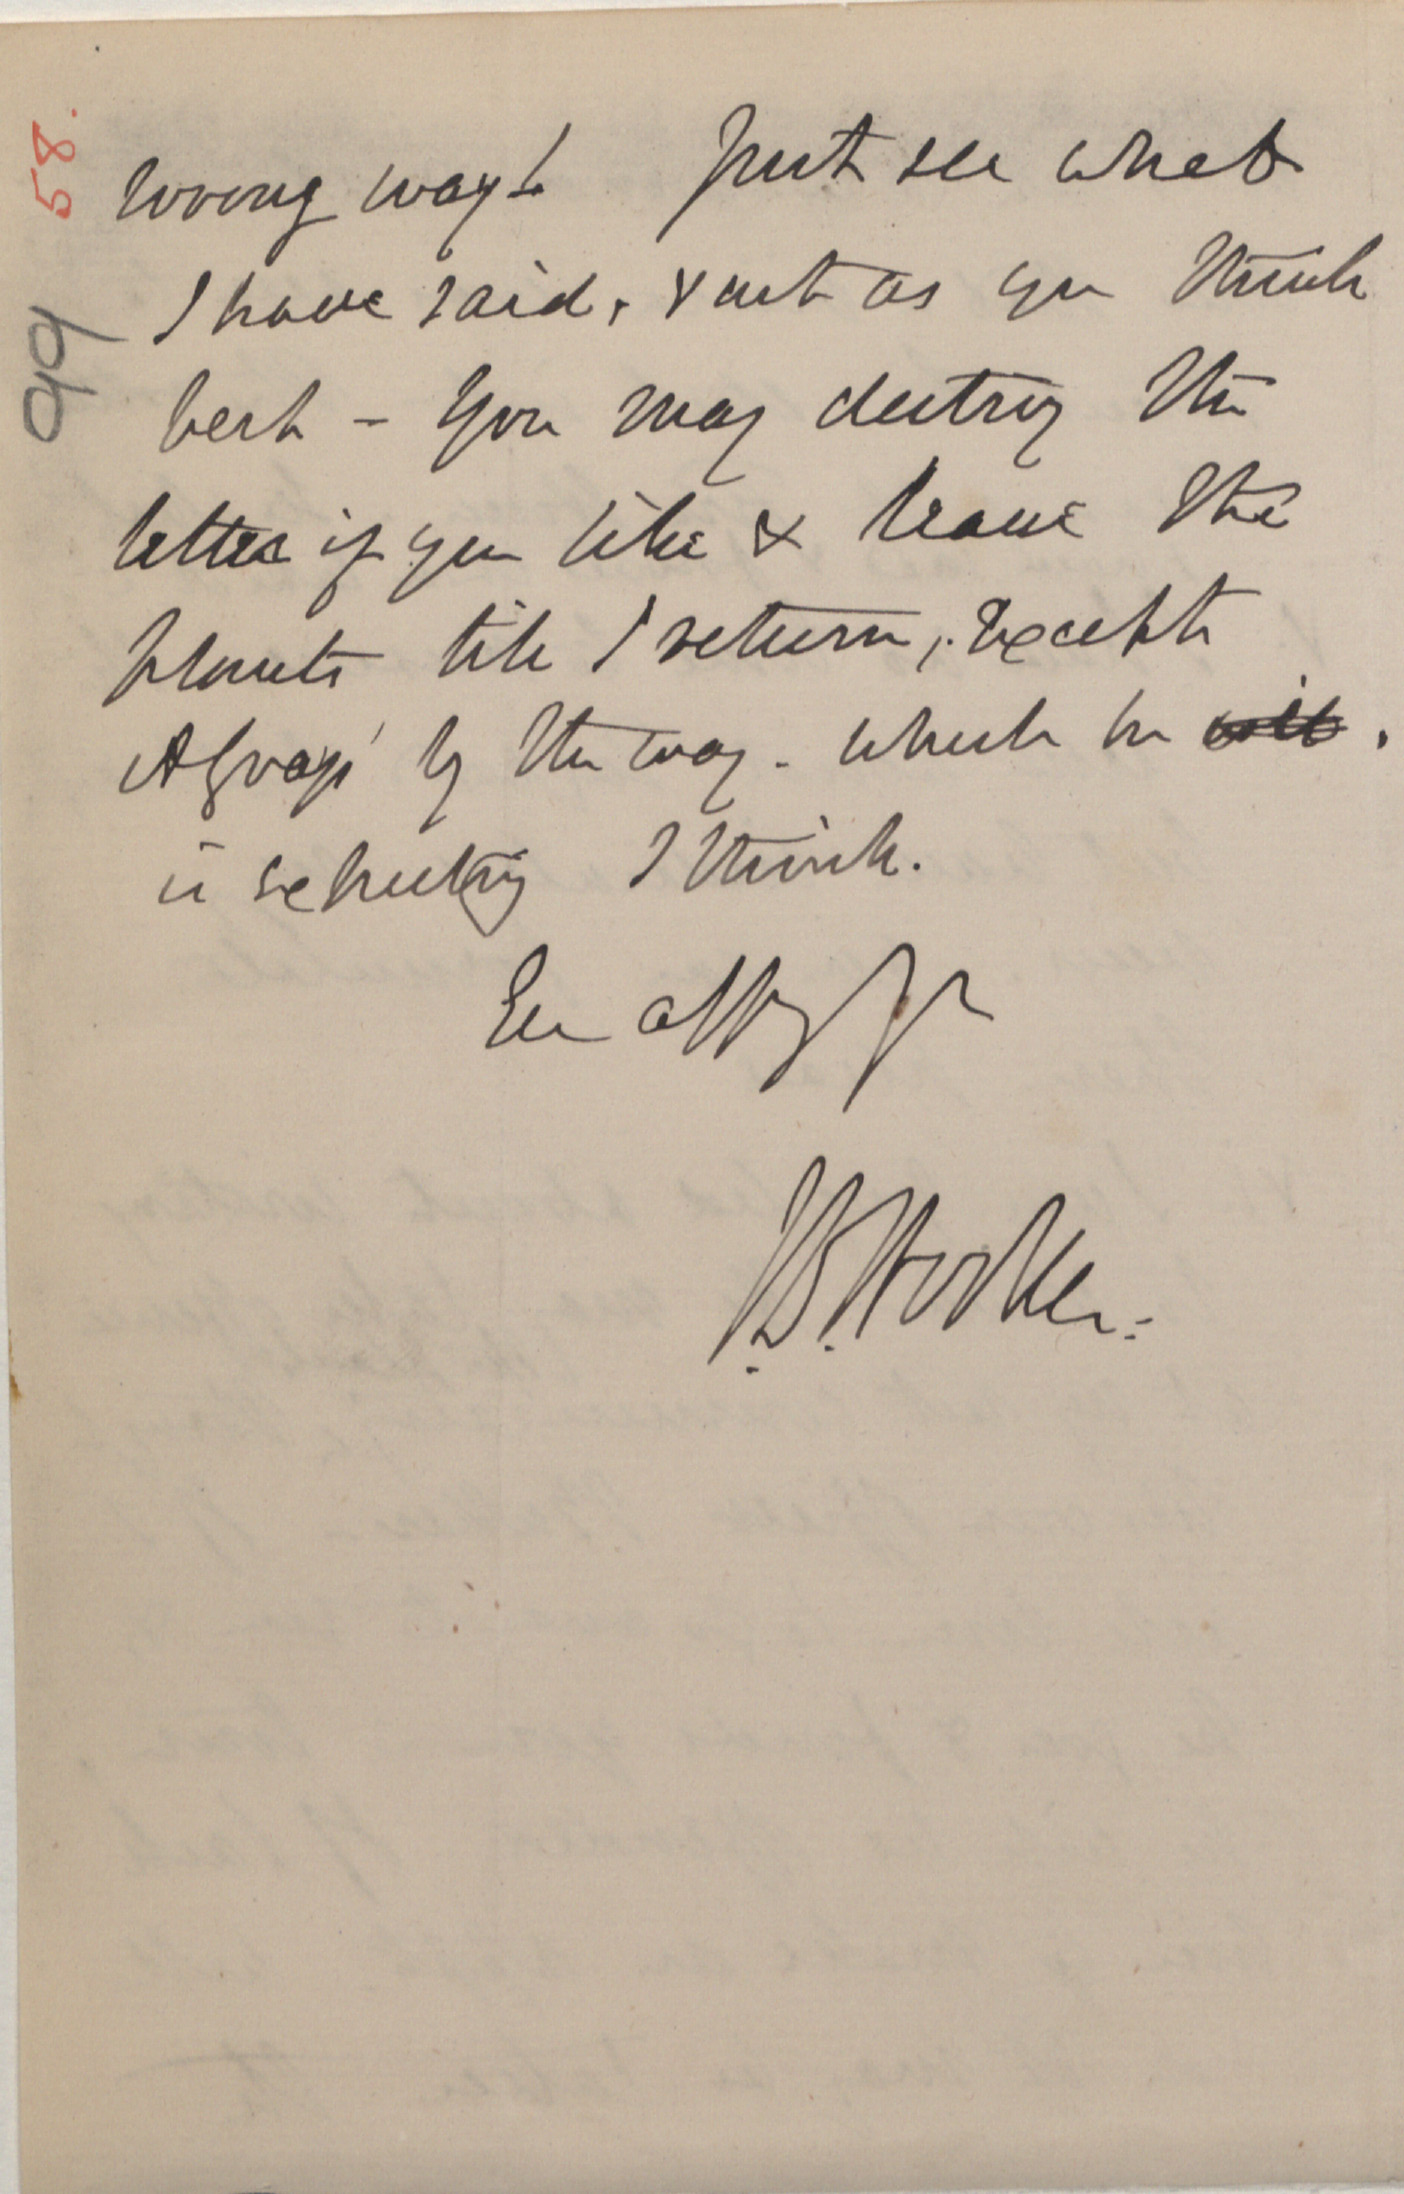 58.
99
wrong way! Just see what
I have said, & act as you think
best - You may destroy the
letter if you like & leave the
plants till I return, except
by the way - which he
is selecting I think.
Ever affy yr
J.D. Hooker.